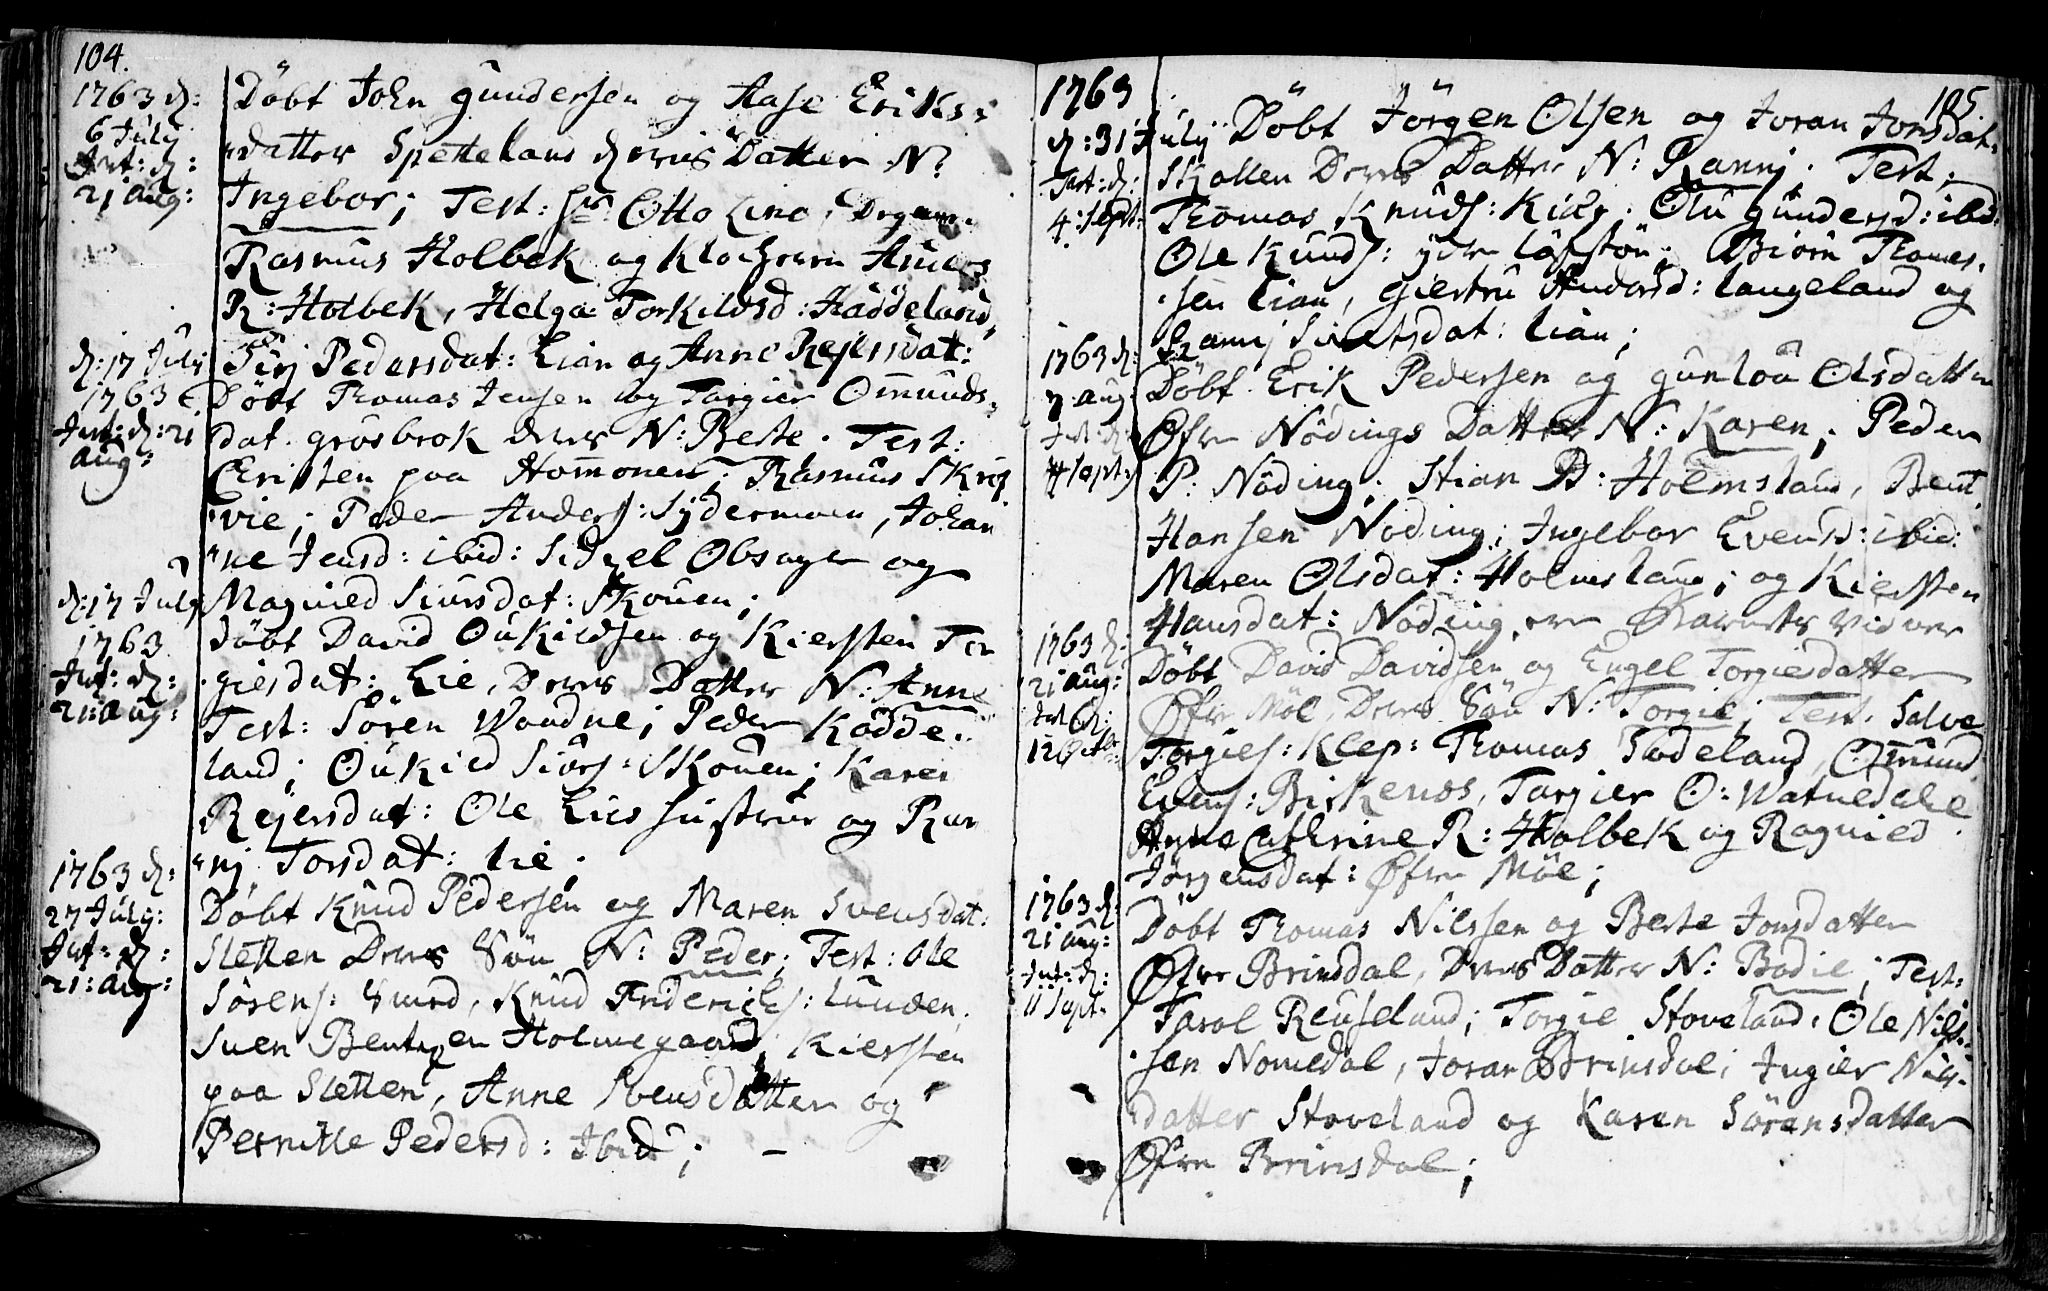 104.
1763 d:
6 July
Int: d:
21 Aug:
Döbt John Gundersen og Aase Eriks=
datter Spettelaus deres Datter N:
Ingebor; Test: Sr: Otto Lino,
Rasmus Holbek og Anders
R: Holbek, Helga Torkildsd: Haddeland,
d: 17 July
1763
Int: d: 21
Aug:
Siri Pedersdat: Lian og Anne Rejersdat:
Döbt Thomas Jensen og Targier Omunds=
dat. Grösbrok deres N: Berte. Test:
Cristen paa Hommonen, Rasmus Skrij
vie; Peder Anders: Sydermoen, Johan
ne Jensd: ibid: Sidzel Obsager og
Magnied Siursdat: Skouen;
d: 17 July
1763
Int: d:
21: Aug:
Döbt David Oukildsen og Kiersten Tor
giesdat: Lie, Deres Datter N: Anne
Test: Sören Woudne; Peder Kodde=
land; Oukild Siurs: Skouen; Karen
Rejersdat: Ole Lies Hustrue og Ran
nj Torsdat: Lie;
1763 d:
27 July:
Int: d:
21: Aug:
Döbt Knud Pedersen og Maren Svensdat:
Sletten Deres Sön N: Peder; Test: Ole
Sörens: Knud Friderichs: Lunden,
Suen Bentzen Holmegaard, Kiersten
paa Sletten, Anne Svensdatter og
Pernille Pedersd: Ibid; –
1763
105
d: 31 July
Int: d:
4: Sept:
Döbt Jörgen Olsen og Joran Jonsdat:
Skollen Deres Datter N: Rannj. Test:
Thomas Knuds: Kile; Olu Gundersd: ibid.
Ole Kunds: Biörn Thomes=
sen Lian, Giertru Andersd: Langeland og
Rannj Sivertsdat: Lian;
1763 d:
7 Aug:
Int d:
4 Sept:
Döbt Erik Pedersen og Gunloü Olsdatter
Öfre Nödings Datter N: Karen; Peder
P: Nöding; Stian P: Holmsland, Bent
Hansen Nöding; Ingebor Evensd: ibid:
Maren Olsdat: Holmslaud; og Kiersten
Hansdat: Nöding, ere Barnets Vidner
1763 d:
21 Aug:
Int d:
12 Octbr
Döbt David Davidsen og Engel Torgiesdatter
Öfre Möl, Deres Sön N: Torgie; Test. Salve
Torgies: Klep: Thomas Sodeland, Omund
Evens: Birkenes, Targier O: Watnedale
Anne Cathrine R: Holbek og Ragnied
Jörgensdat: Öfre Möl;
1763 d:
21 Aug:
Int: d:
11 Sept.
Döbt Thomas Nilssen og Berte Jonsdatter
Öfre Brinsdal, Deres Datter N: Bodie; Test:
Tarol Reuseland; Torgie Stoveland, Ole Nils=
sen Nomedal, Joran Brinsdal; Ingier Nils=
datter Stoveland og Karen Sörensdatter
Öfre Brinsdal;